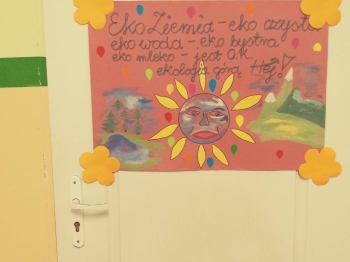 Eko Ziemia - eko czysta
eko woda - eko bystra
eko mleko - jest O.K.
ekologia górą Hej!